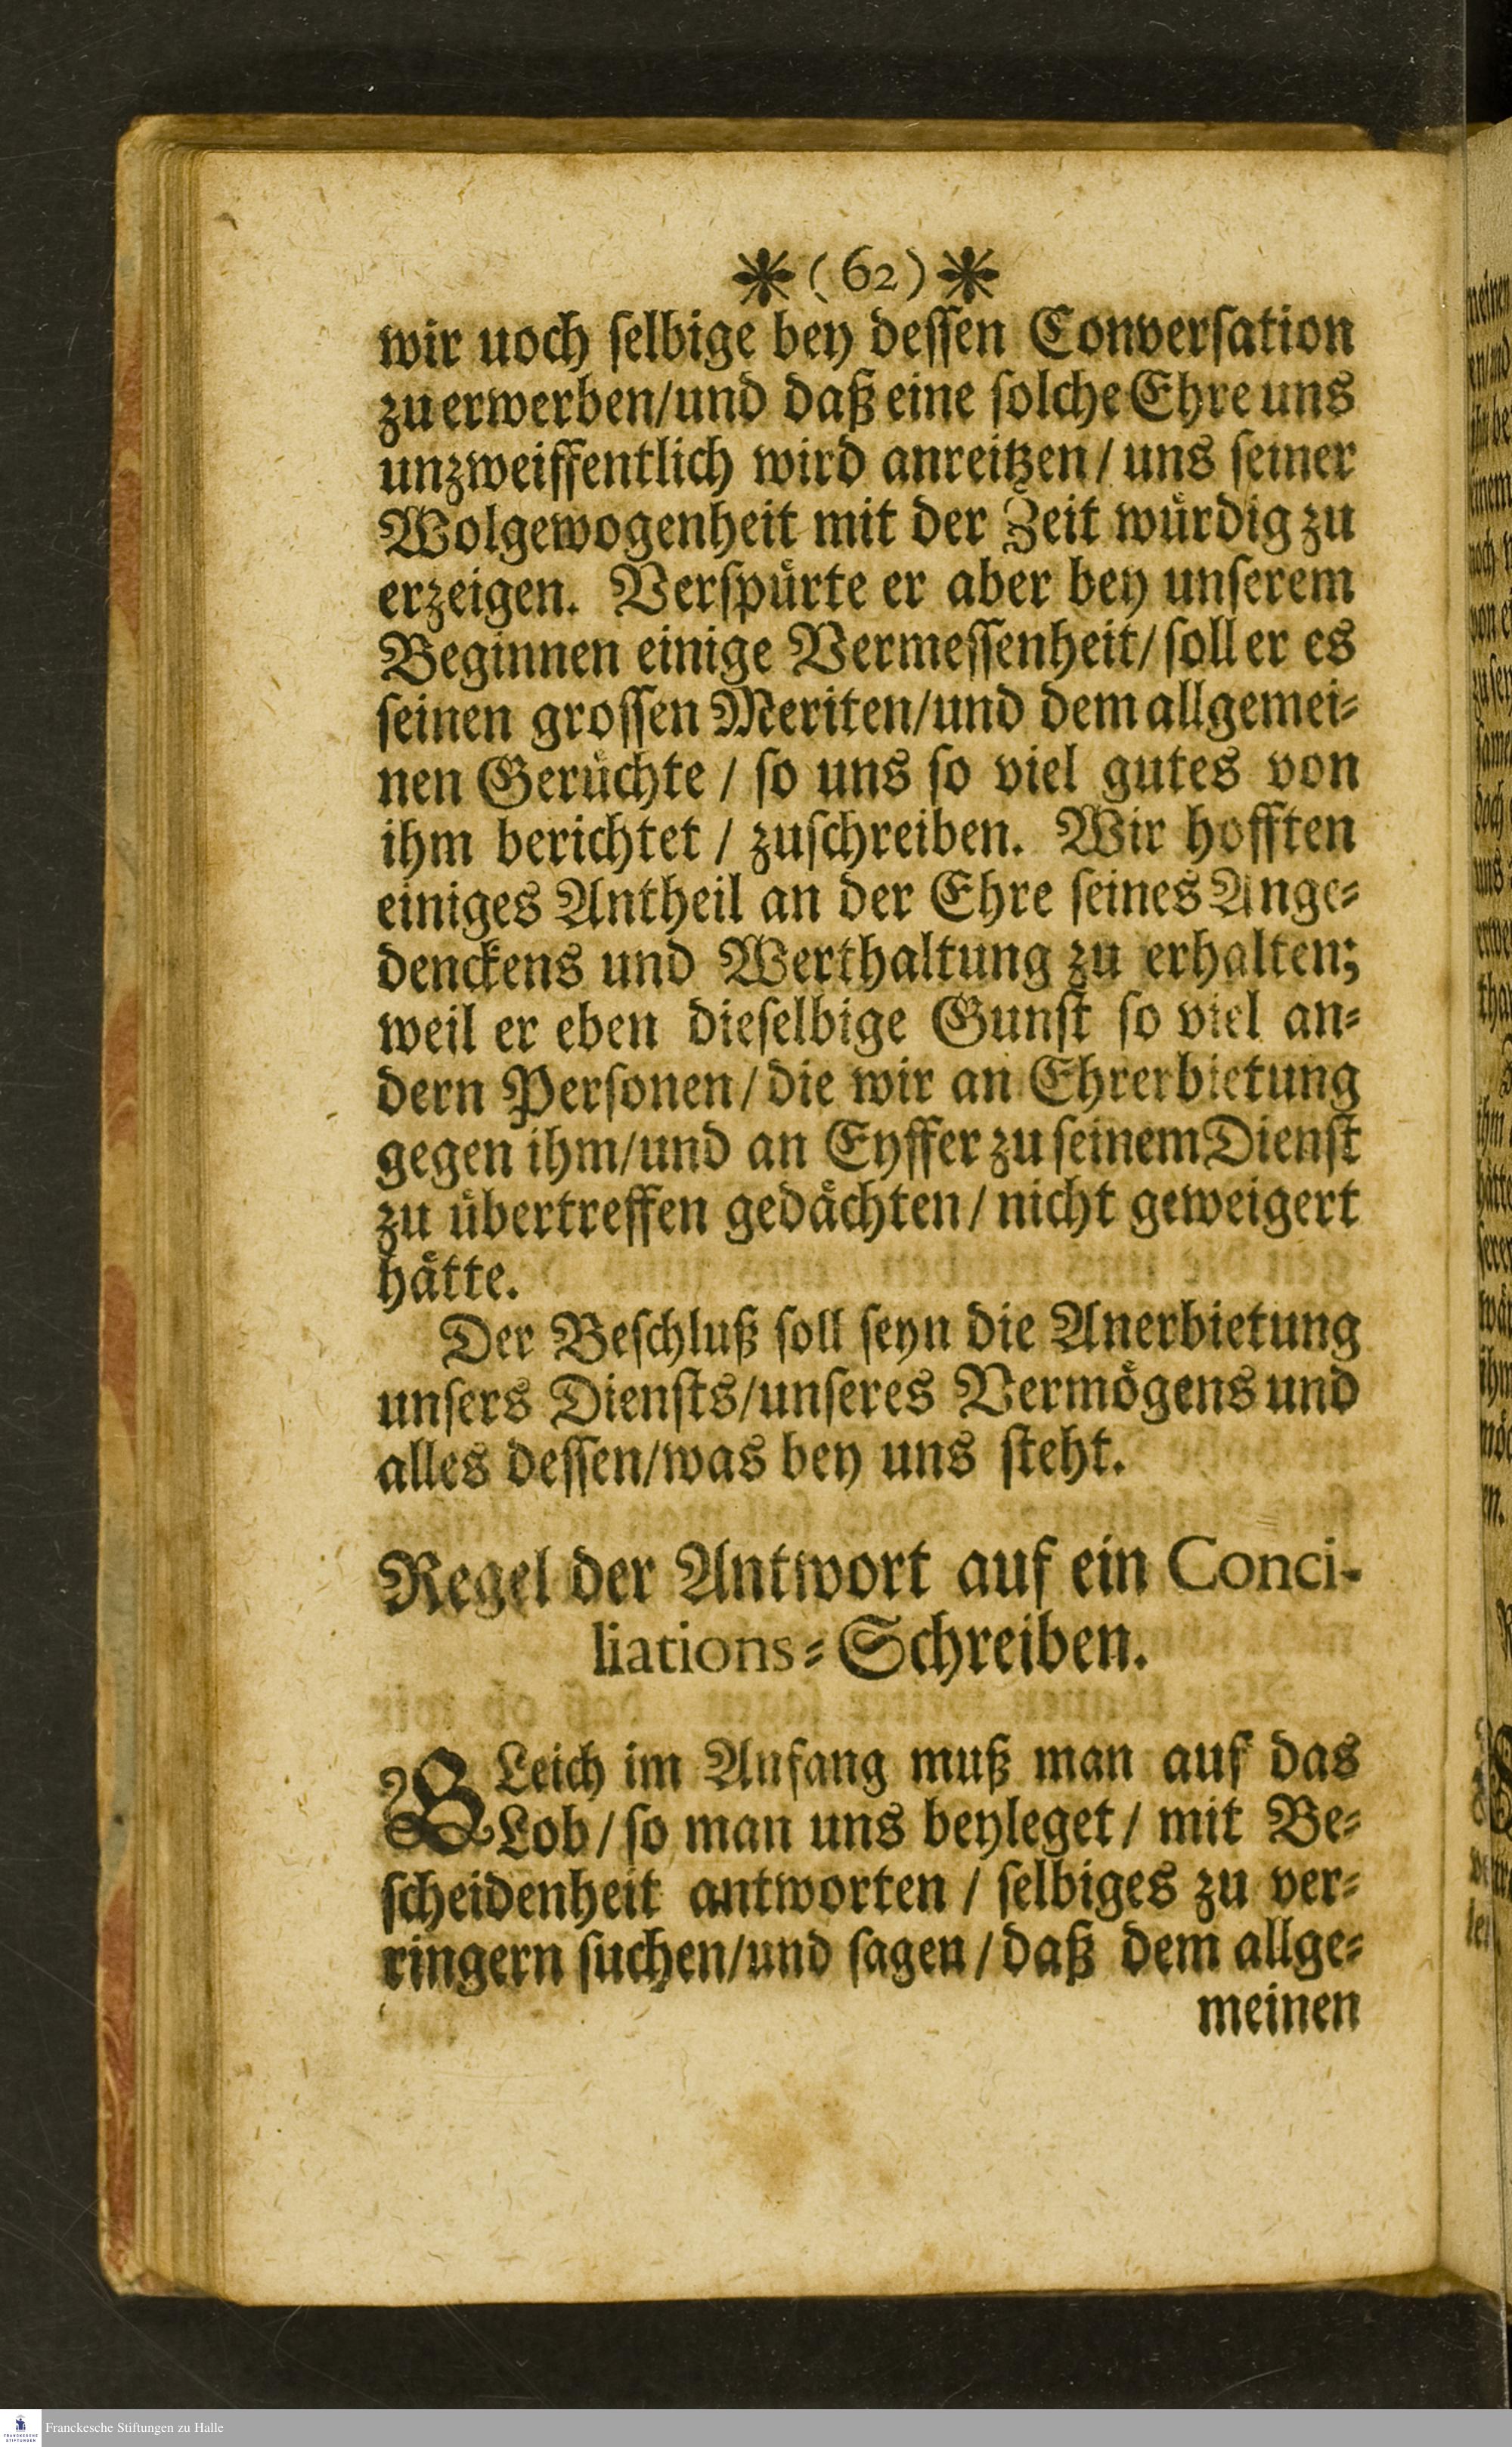 *(62)*
wir uoch selbige bey dessen Conversation
zu erwerben/und daß eine solche Ehre uns
unzweiffentlich wird anreitzen / uns seiner
Wolgewogenheit mit der Zeit würdig zu
erzeigen. Verspürte er aber bey unserem
Beginnen einige Vermessenheit/ soll er es
seinen grossen Meriten/und dem allgemei-
nen Gerüchte / so uns so viel gutes von
ihm berichtet / zuschreiben. Wir hofften
einiges Antheil an der Ehre seines Ange-
denckens und Werthaltung zu erhalten;
weil er eben dieselbige Gunst so viel an-
dern Personen/ die wir an Ehrerbietung
gegen ihm/und an Eyffer zu seinem Dienst
zu übertreffen gedächten / nicht geweigert
hätte.
Der Beschluß soll seyn die Anerbietung
unsers Diensts/unseres Vermögens und
alles dessen/was bey uns steht.
Regel der Antwort auf ein Conci-
liations-Schreiben.
GLeich im Anfang muß man auf das
Lob / so man uns beyleget / mit Be-
scheidenheit antworten / selbiges zu ver-
ringern suchen/und sagen / daß dem allge-
meinen
Franckesche Stiftungen zu Halle